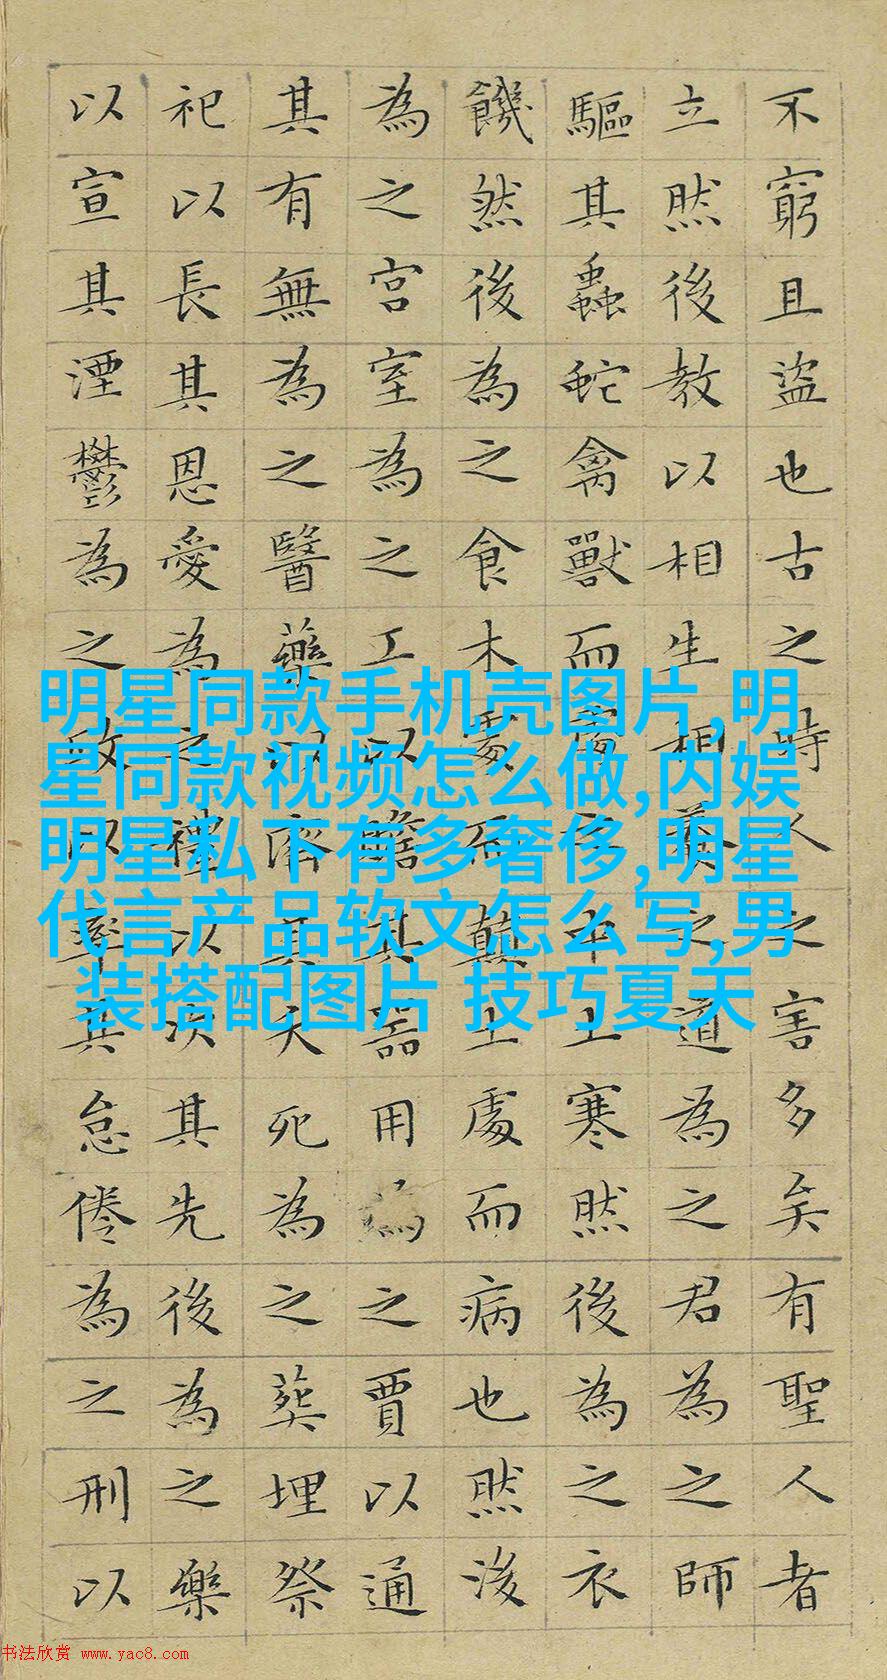 不窮且盜也古之時人之害多矣有聖人者
立然後教以相生相養之道為之君為之師
驅其蟲蛇禽獸而處之中土寒然後為之衣
饑然後為之食木處而顛土處而病也然後
為之宮室為之工以贍其器用為之賈以通
其有無為之醫藥以濟其夭死為之葬埋祭
祀以長其恩愛為之禮以次其先後為之樂
以宣其湮鬱為之政以率其怠倦為之刑以
明星同款手机壳图片,明
星同款视频怎么做,内娱
明星私下有多奢侈,明星
代言产品软文怎么写,男
装搭配图片 技巧夏天
书法欣赏 www.yac8.com